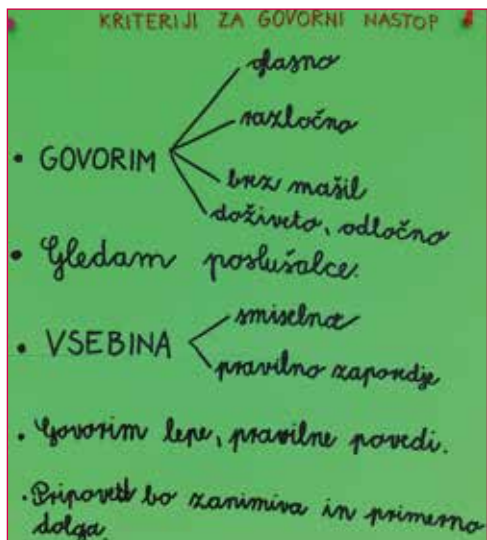 KRITERIJI ZA GOVORNI NASTOP
glasno
razločno
• GOVORIM
brez mašil
doživeto, odločno
• Gledam poslušalce.
smiselna
• VSEBINA
pravilno zaporedje
• Govorim lepe, pravilne povedi.
• Pripoved bo zanimiva in primerno
dolga.